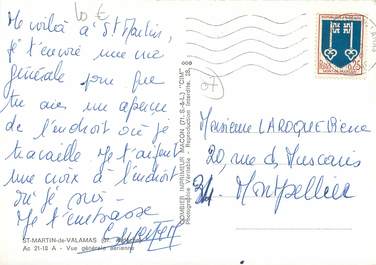 10 €
Me voilà à St Martin,
je t'envoie une vue
générale pour que
tu aies un aperçu
de l'endroit où je
travaille. Je t'ai mis
une croix à l'endroit
où je suis.
Je t'embrasse
ST-MARTIN-de-VALAMAS
Ac 21-18 A - Vue générale aérienne
COMBIER IMPRIMEUR MACON (71, S.-&-L.) "CIM"
Photographie Véritable - Reproduction interdite.
07
REPUBLIQUE FRANÇAISE
0,25
MONT-DE-MARSAN
Monsieur LAROQUE Pierre
20, rue de Tuscaris
34. Montpellier